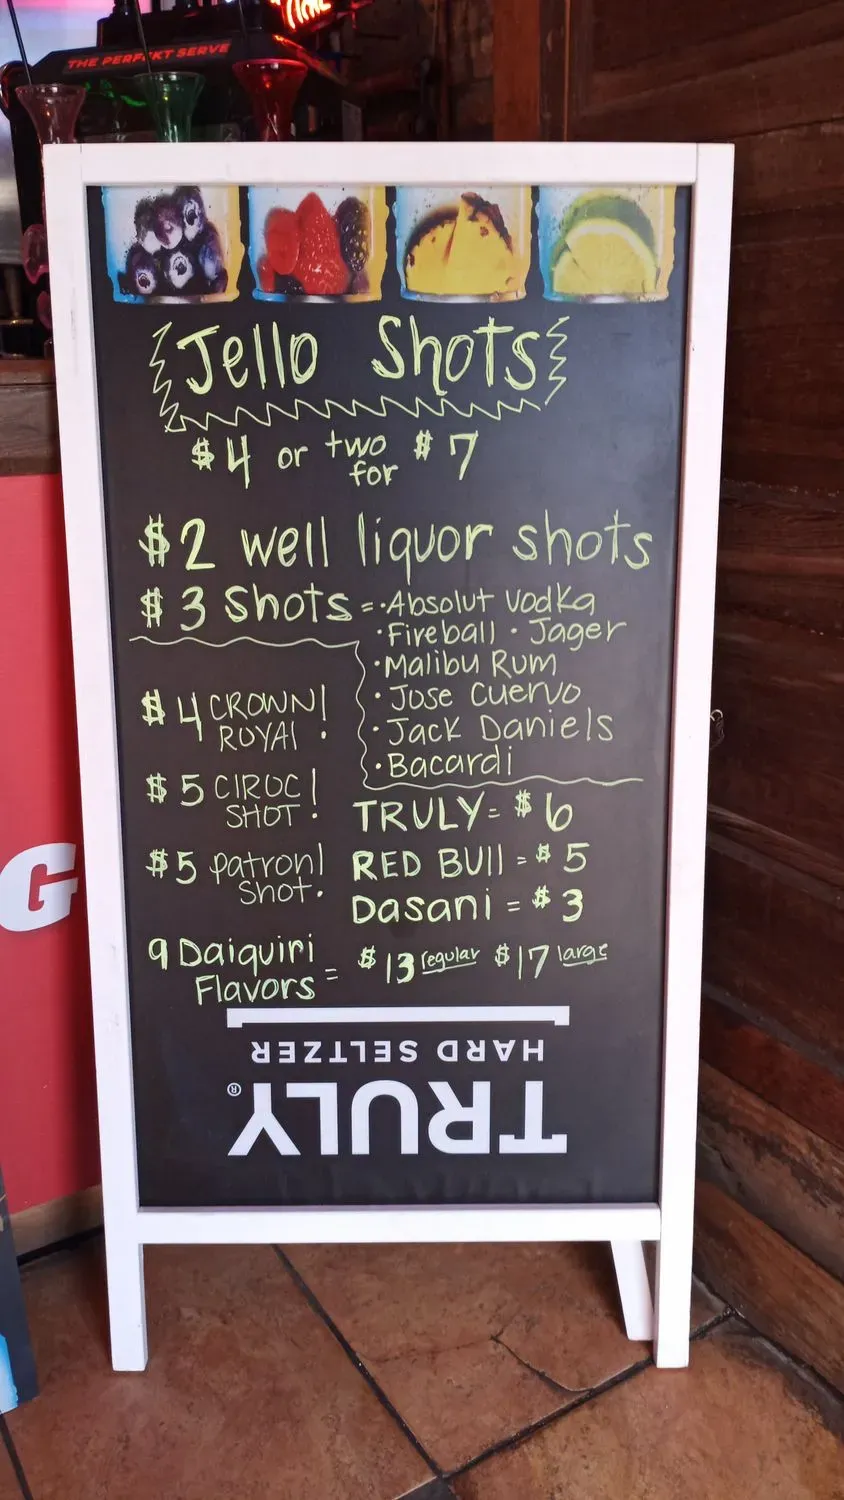 THE PERFEKT SERVE
Jello Shots
$4 or two for $7
$2 well liquor shots
$3 Shots = · Absolut Vodka
· Fireball · Jager
· Malibu Rum
· Jose Cuervo
· Jack Daniels
· Bacardi
$4 CROWN!
ROYAl
$5 CIROC!
SHOT
$5 patron!
Shot
TRULY = $6
RED BUll = $5
Dasani = $3
9 Daiquiri
Flavors = $13 regular $17 large
HARD SELTZER
TRULY®
G